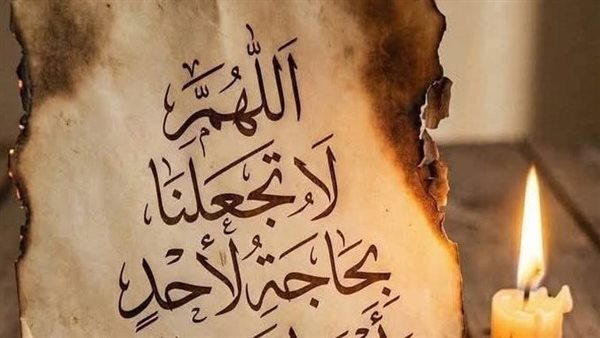 اَللّٰهُمَّ
لَا تَجعَلنَا
بِحَاجَةِ لأَحَدٍ